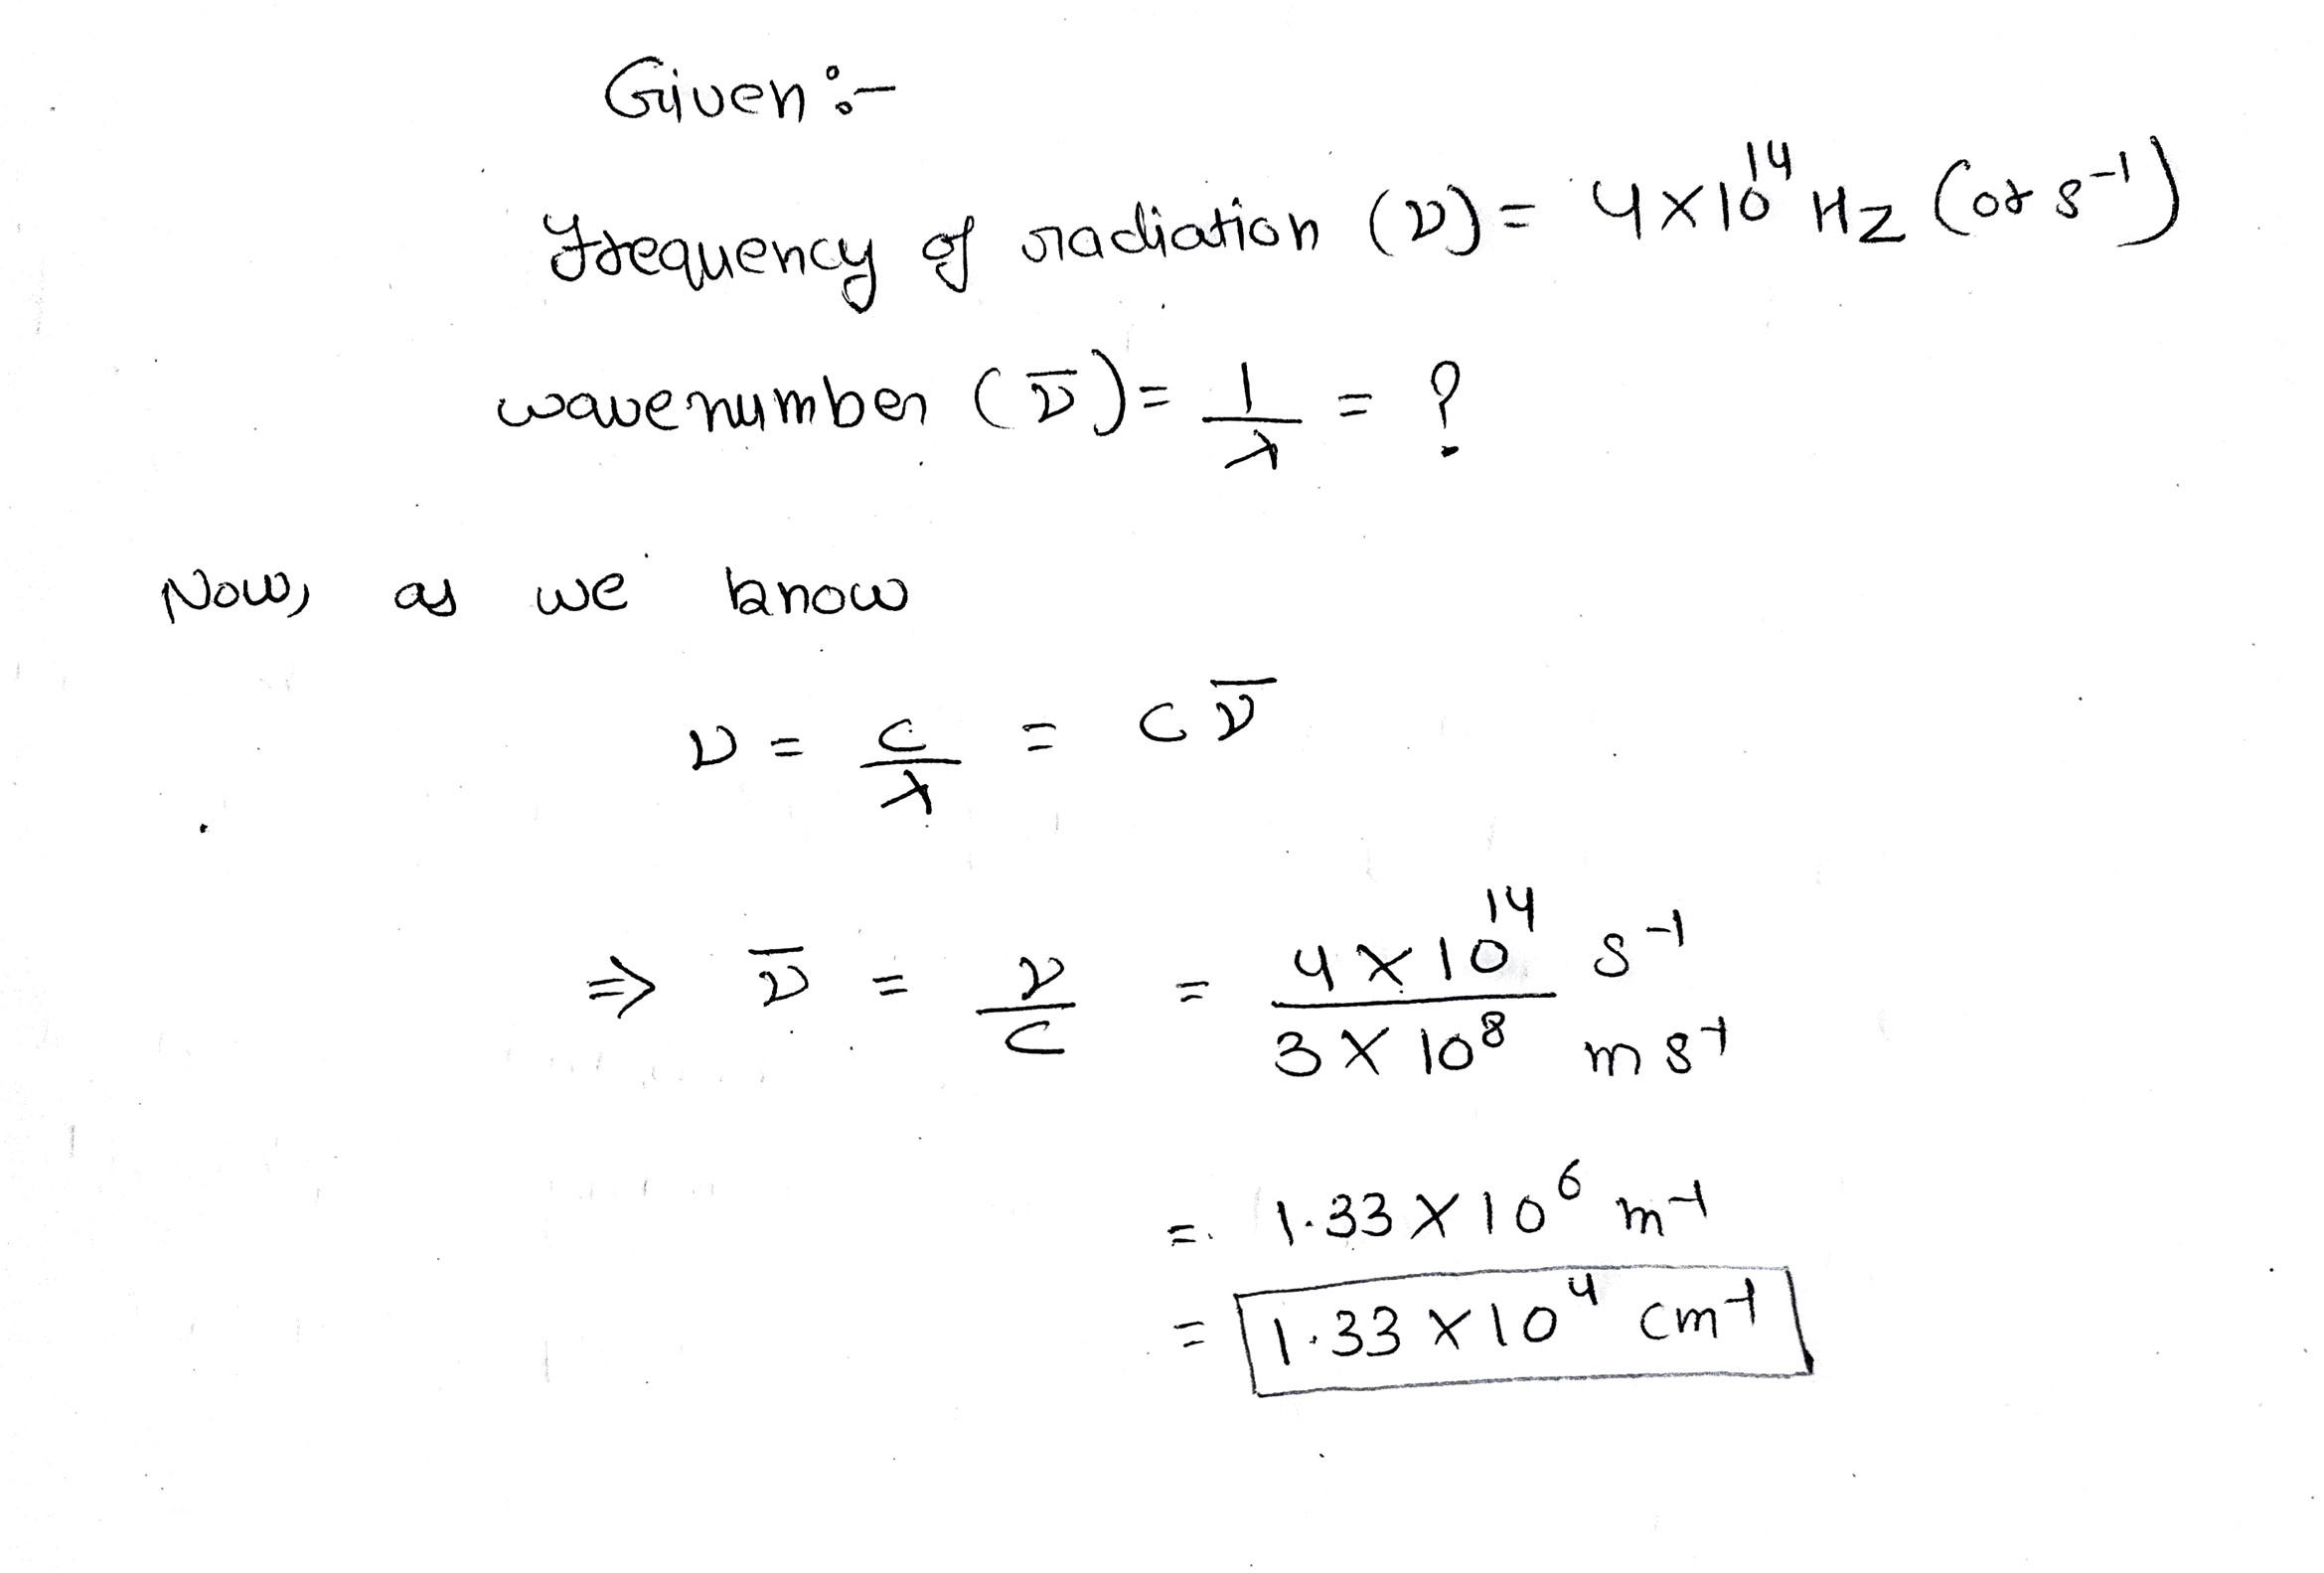 Given:-
Frequency of radiation (ν) = 4×10¹⁴ Hz (or s⁻¹)
wavenumber (ν̅) = 1/λ = ?
Now, as we know
ν = c/λ = cν̅
⇒ ν̅ = ν/c = 4×10¹⁴ s⁻¹ / 3×10⁸ ms⁻¹
= 1.33×10⁶ m⁻¹
= 1.33×10⁴ cm⁻¹